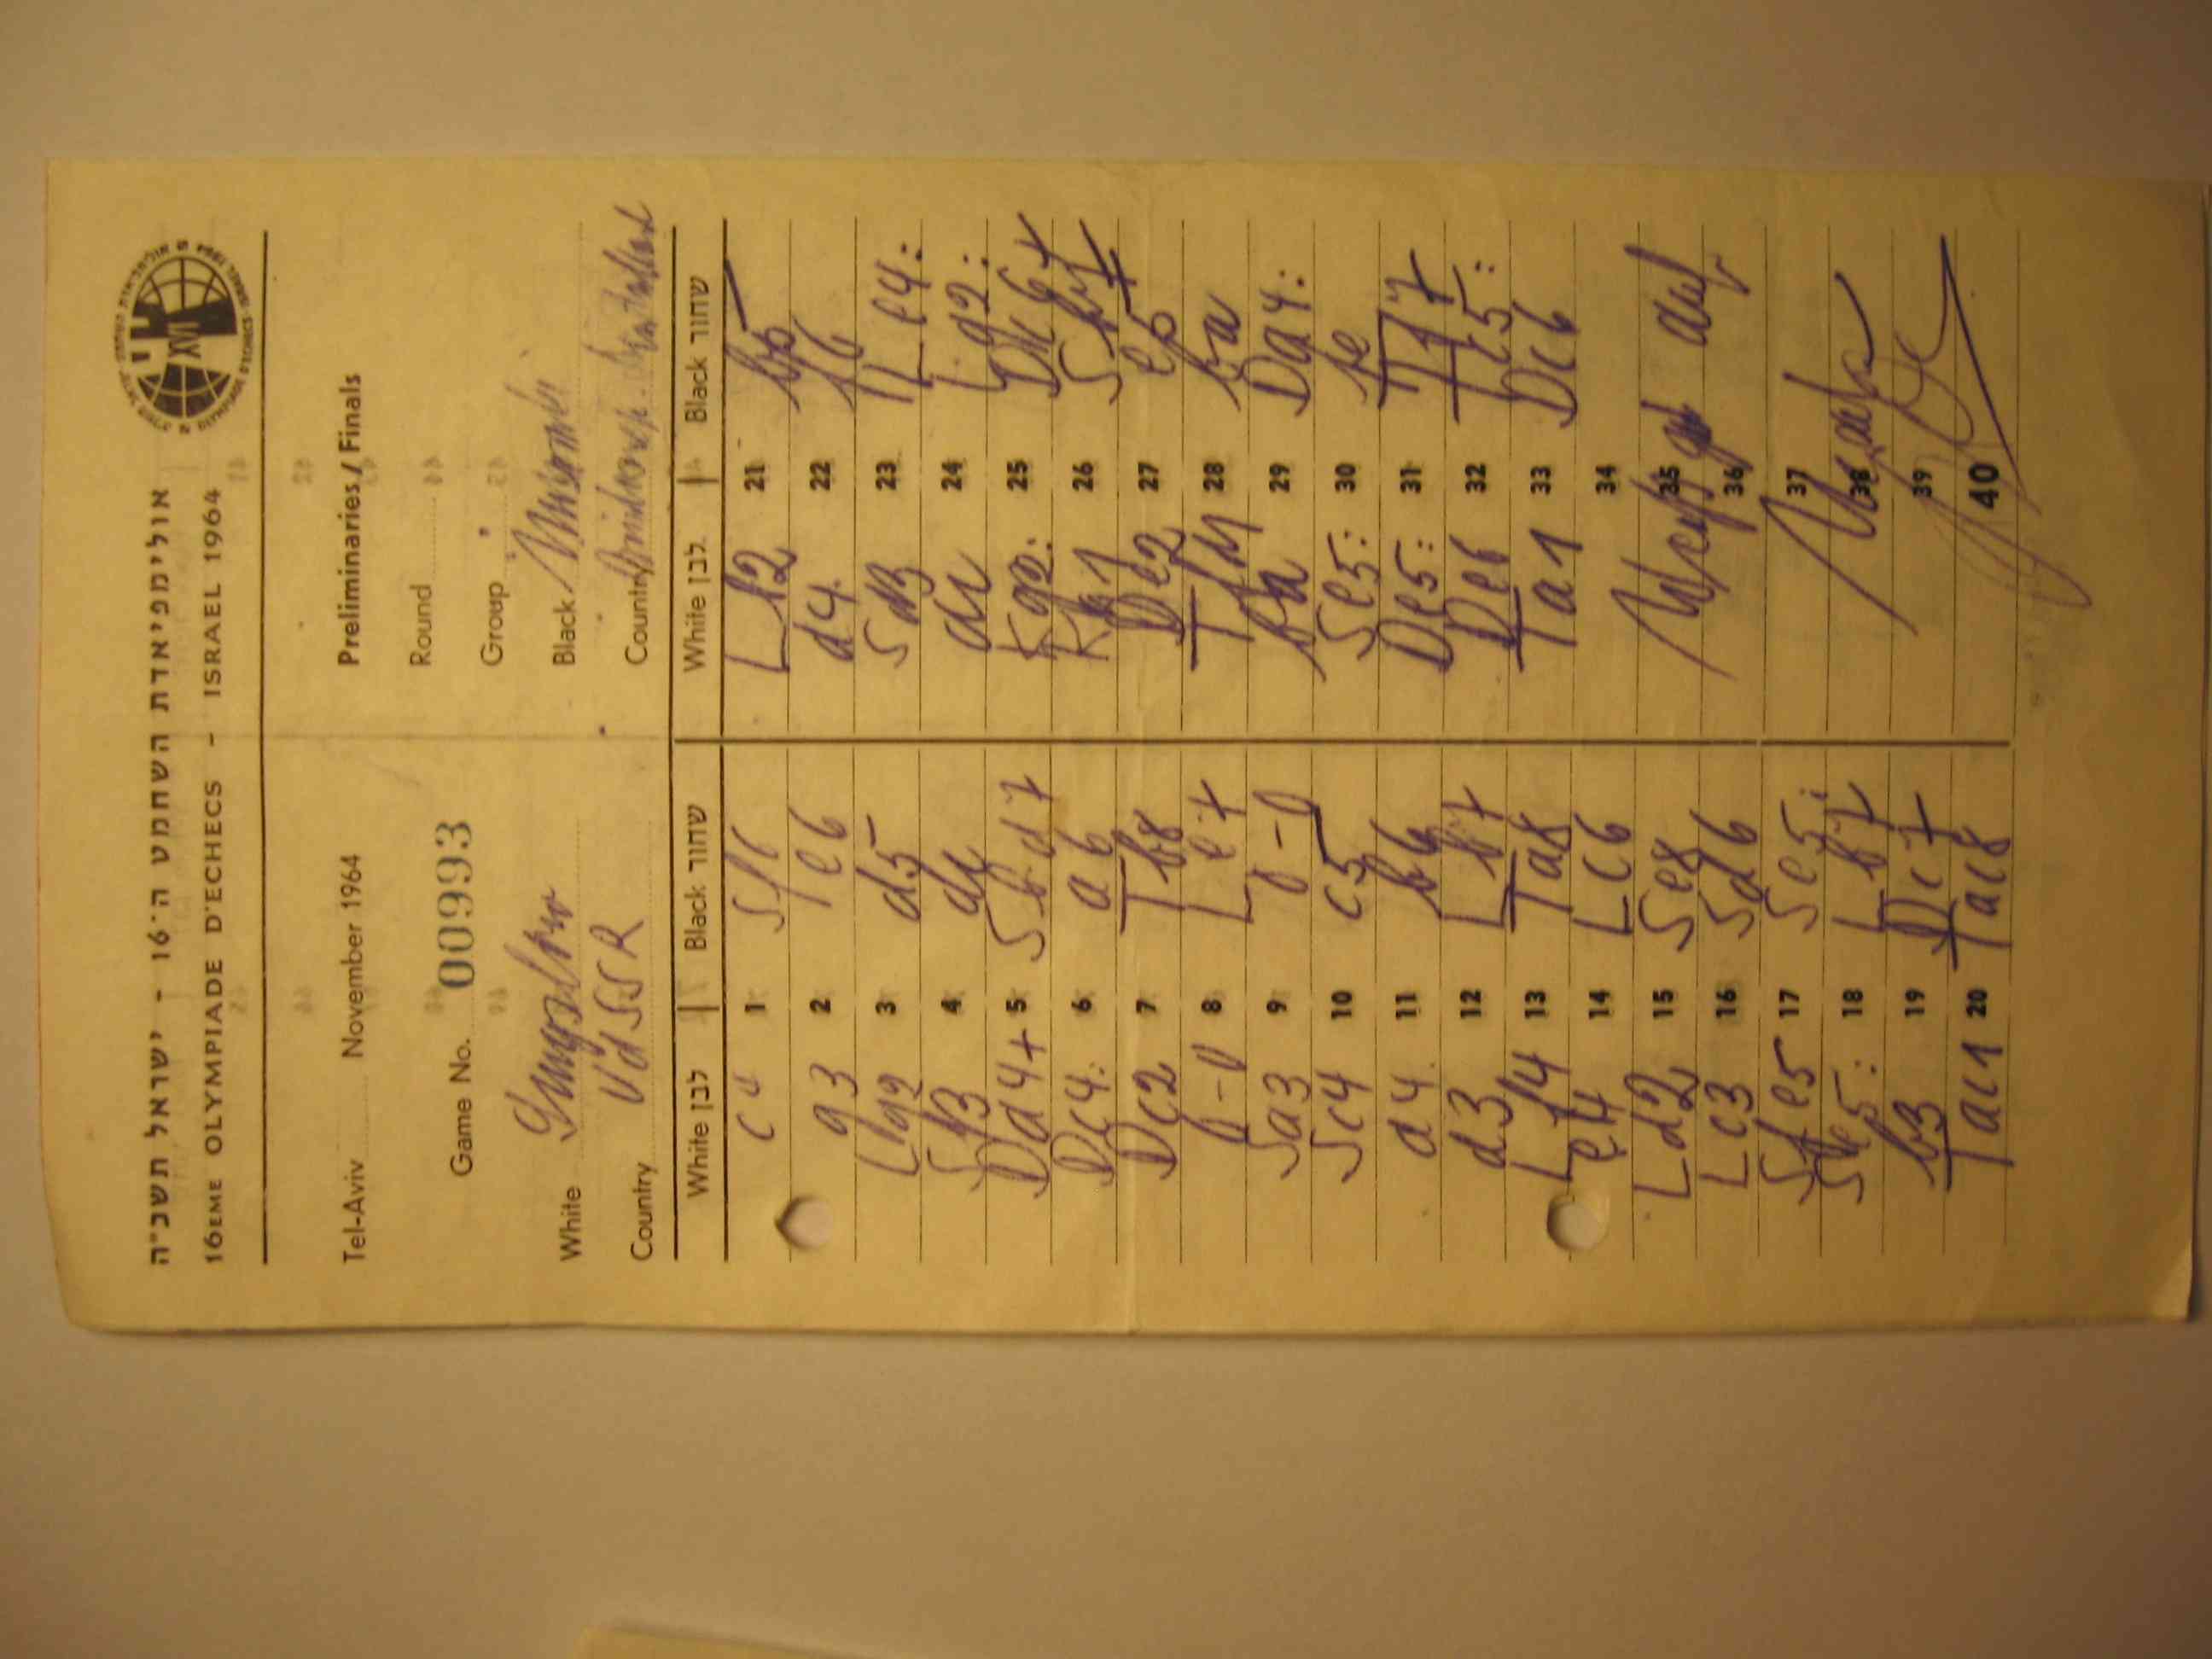 אולימפיאדת השחמט ה־16 - ישראל תשכ"ה
16EME OLYMPIADE D'ECHECS - ISRAEL 1964
XVI
Tel-Aviv November 1964 Preliminaries / Finals
Game No. 00993 Round
Group
White Black
Country UdSSR Country
White לבן Black שחור White לבן Black שחור
c4 1 Sf6 Lf2 21 b5
g3 2 e6 d4 22 f6
Lg2 3 d5 Sd3 23 Le4:
Sf3 4 dc dc 24 Lg2:
Dd4+ 5 Sbd7 Kg2: 25 Dc6+
Dc4: 6 a6 Kg1 26 Sb7
Dc2 7 Tb8 De2 27 e5
0-0 8 Le7 Tf1 28 ba
Sa3 9 0-0 ba 29 Da4:
Sc4 10 c5 Se5: 30 fe
a4 11 b6 De5: 31 Tf7
d3 12 Lb7 De6 32 Tc5:
Lf4 13 Ta8 Ta1 33 Dc6
e4 14 Lc6 34
Ld2 15 Se8 35
Lc3 16 Sd6 36
Sfe5 17 Se5: 37
Se5: 18 Lb7 38
b3 19 Dc7 39
Tac1 20 Tac8 40